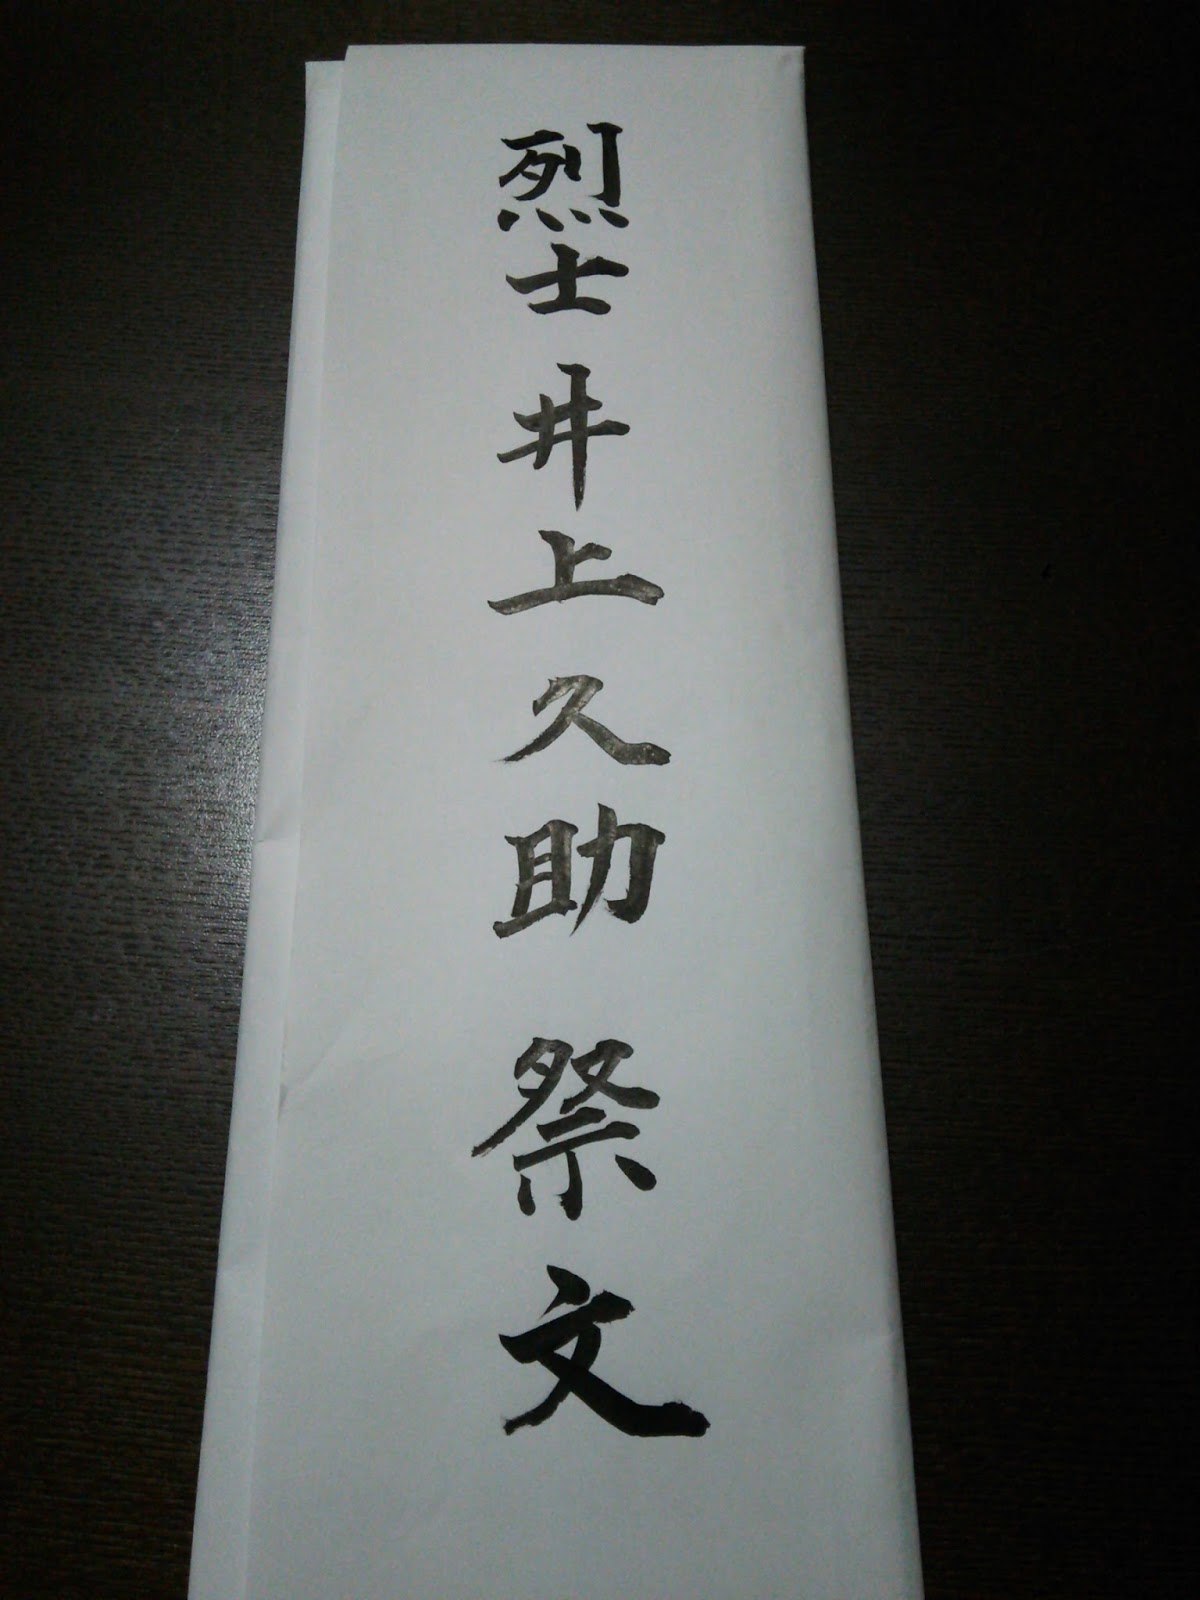 烈士 井上久助 祭文